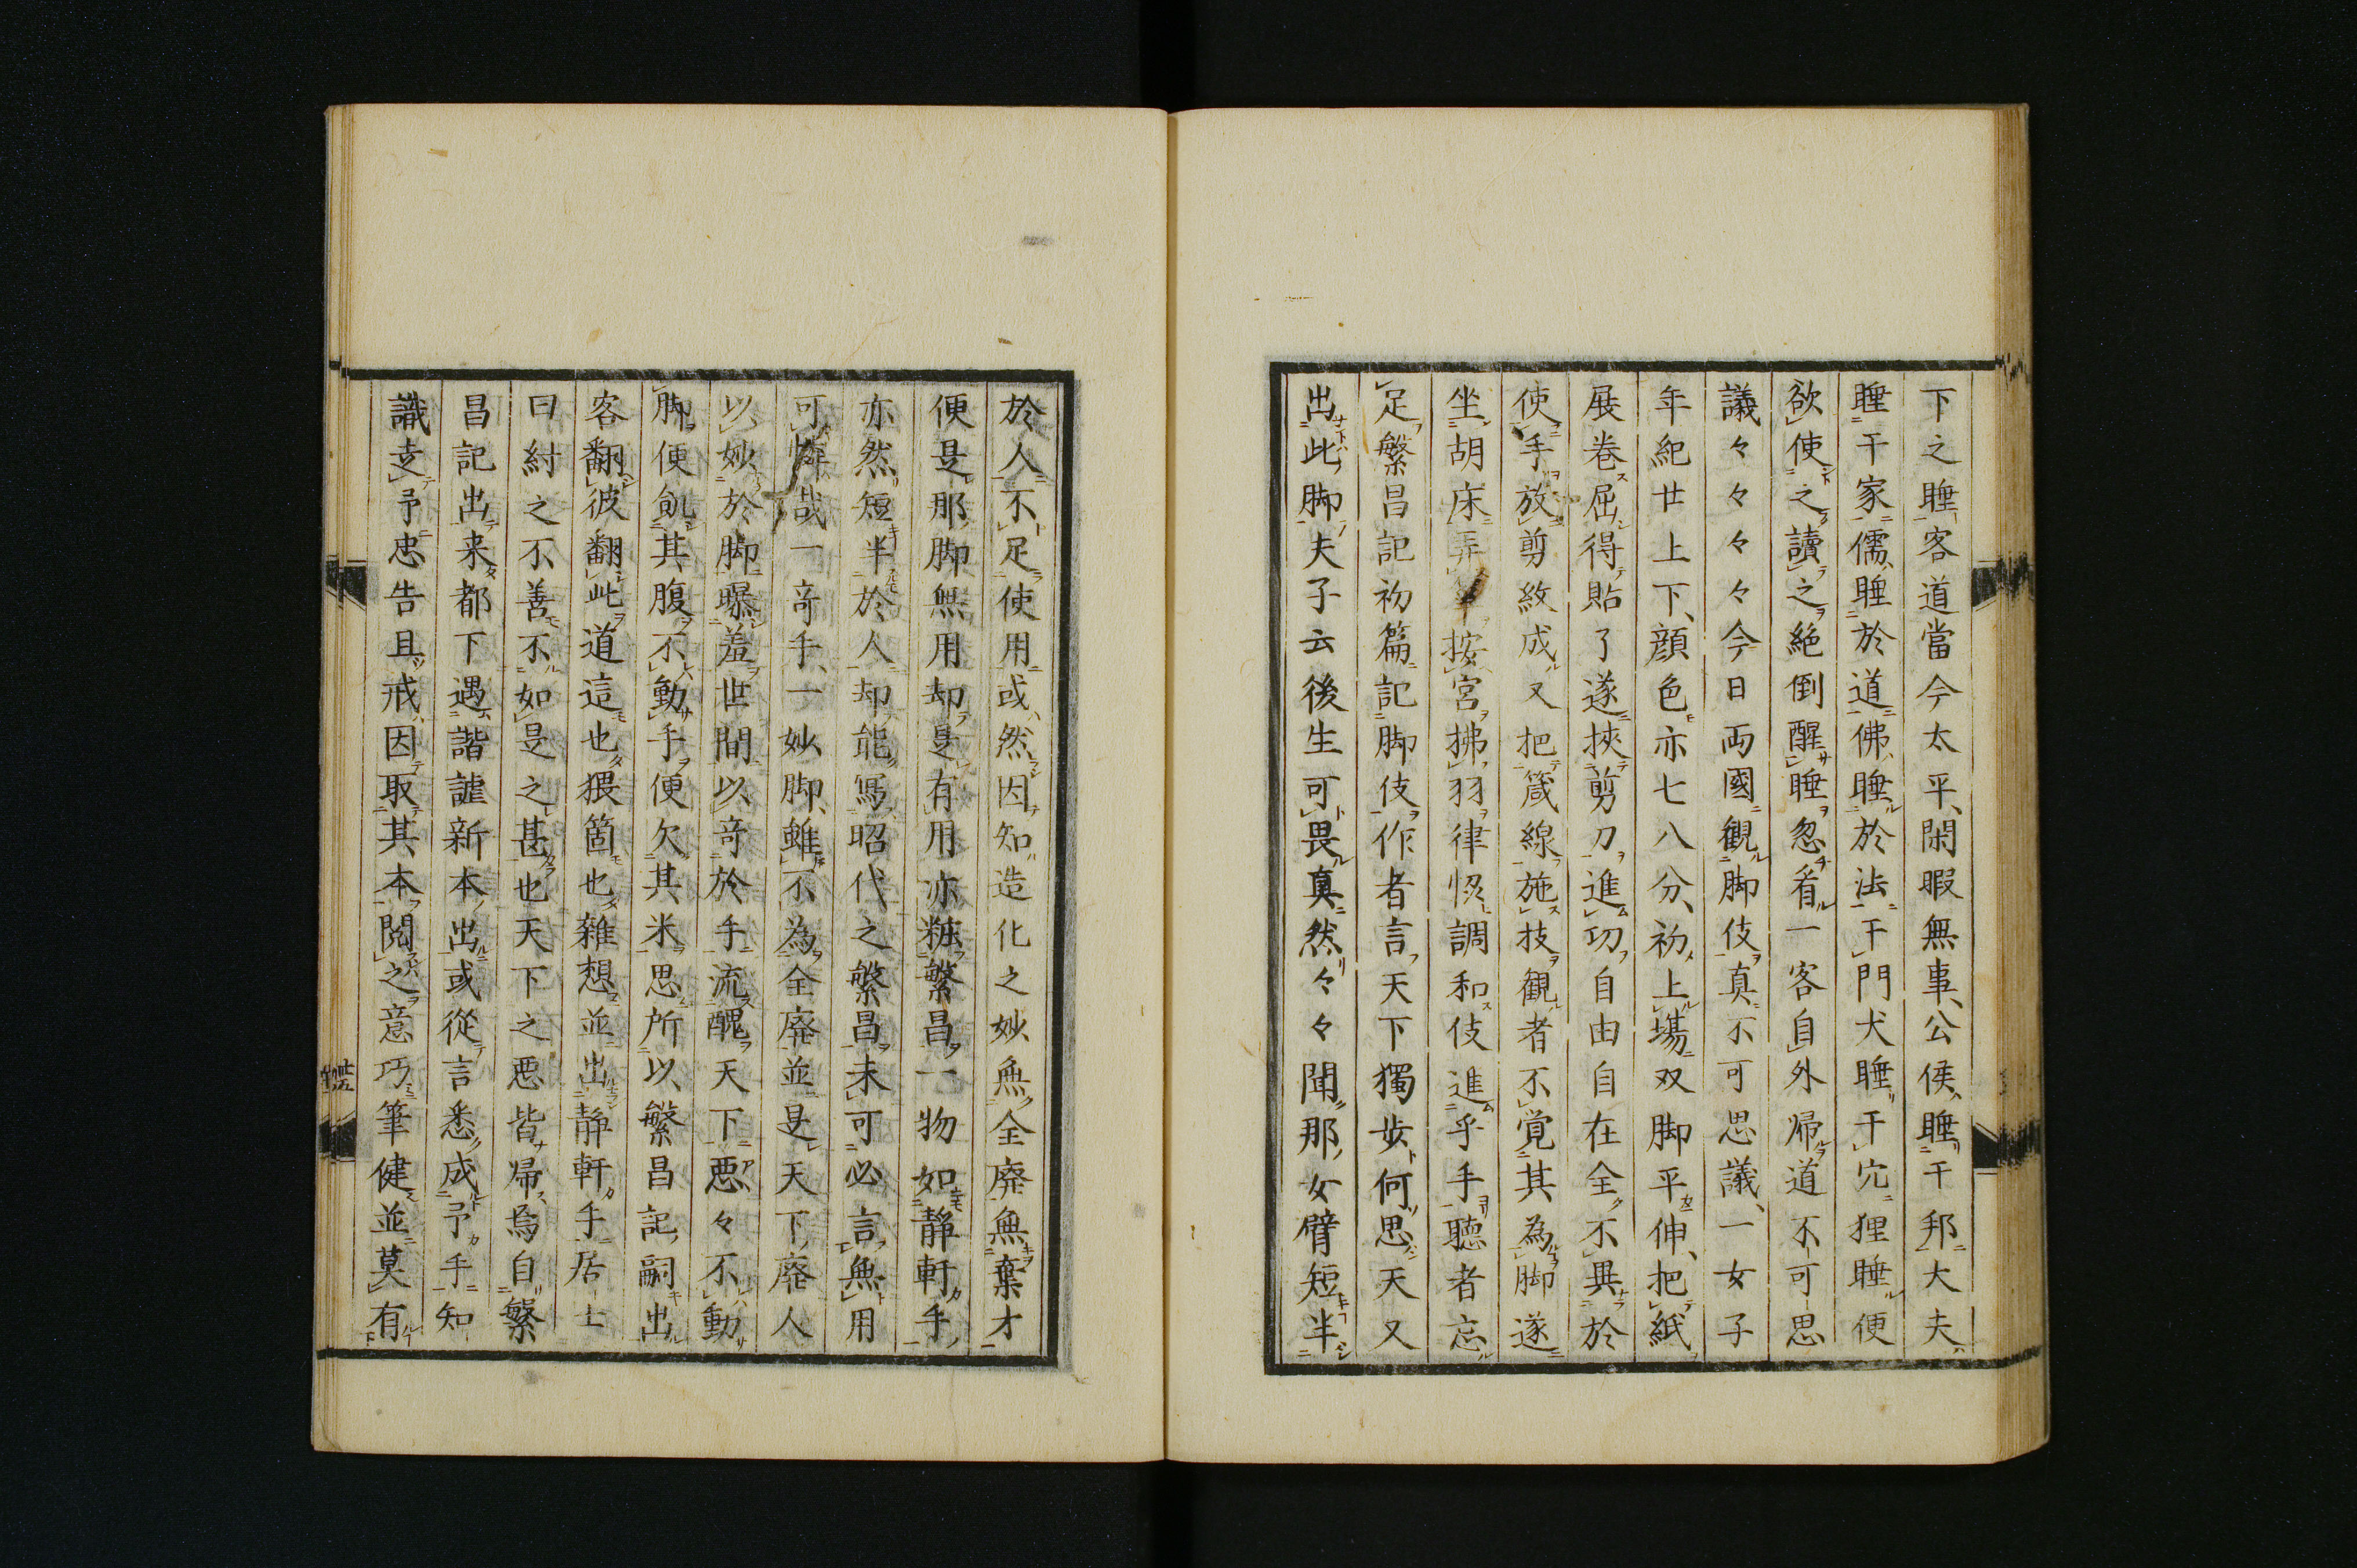 下之睡客道當今太平閑暇無事公侯睡干邦大夫
睡干家儒睡於道佛睡於法干門犬睡干穴狸睡便
欲使之讀之絶倒醒睡忽看一客自外帰道不可思
議々々々々今日両國觀脚伎真不可思議一女子
年紀廿上下顔色亦七八分初上場双脚平伸把紙
展卷屈得貼了遂挾剪刀進功自由自在全不異於
使手放剪紋成又把箴線施技觀者不覚其為脚遂
坐胡床弄按宮拂羽律恊調和伎進乎手聽者忘
足繁昌記初篇記脚伎作者言天下獨歩何思天又
出此脚夫子云後生可畏真然々々聞那女臂短半
於人不足使用或然因知造化之妙無全廃無棄才
便是那脚無用却是有用亦粧繁昌一物如靜軒手
亦然短半於人却能寫昭代之繁昌未可必言無用
可憐哉一竒手一妙脚雖不為全廃並是天下廃人
以妙於脚曝羞世間以竒於手流醜天下惡々不動
脚便飢其腹不動手便欠其米思所以繁昌記嗣出
客翻彼翻此道這也猥箇也雜想並出静軒手居士
曰紂之不善不如是之甚也天下之惡皆帰焉自繁
昌記出来都下遇諧謔新本出或從言悉成予手知
識走予忠告且戒因取其本閲之意巧筆健並莫有